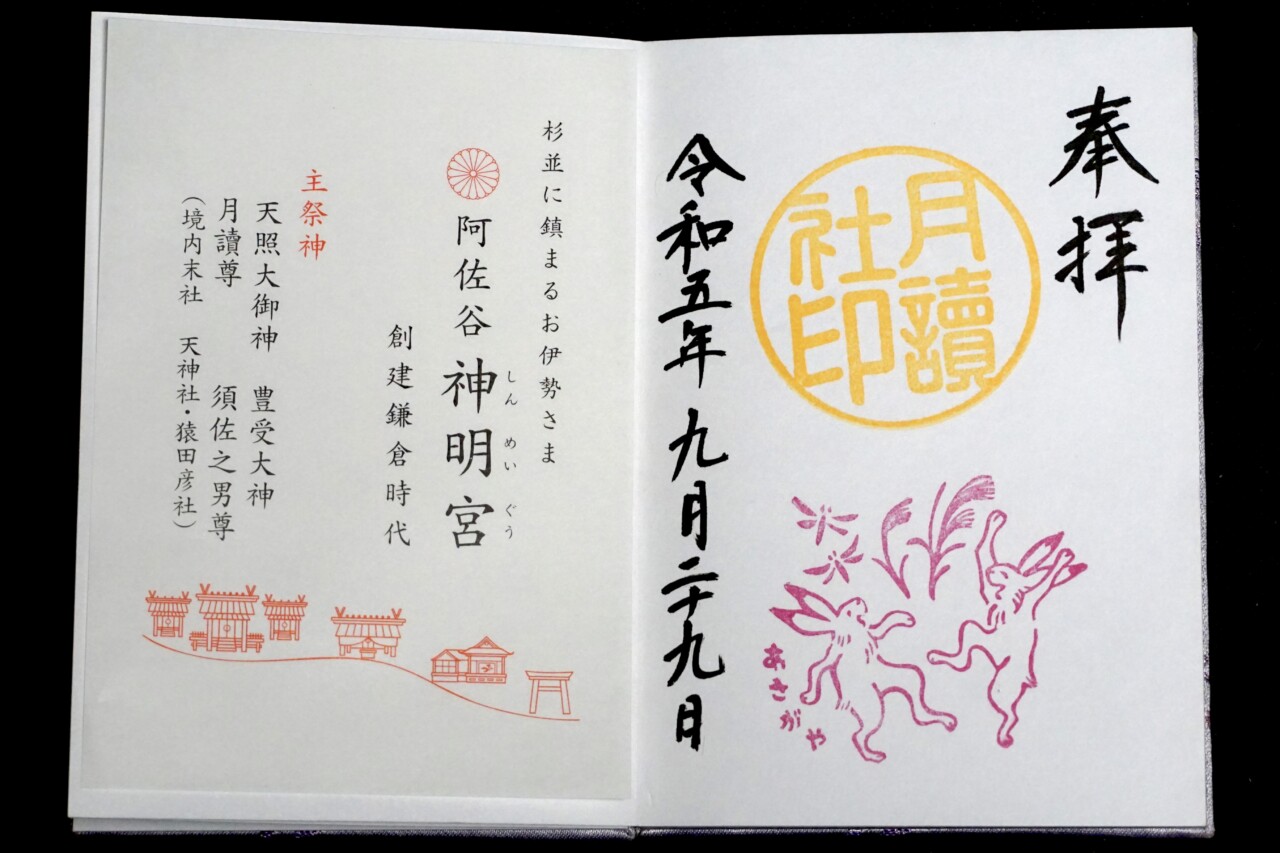 奉拝
月讀
社印
令和五年九月二十九日
あさがや
杉並に鎮まるお伊勢さま
阿佐谷神明宮
しんめいぐう
創建鎌倉時代
主祭神
天照大御神　豊受大神
月讀尊　須佐之男尊
（境内末社　天神社・猿田彦社）